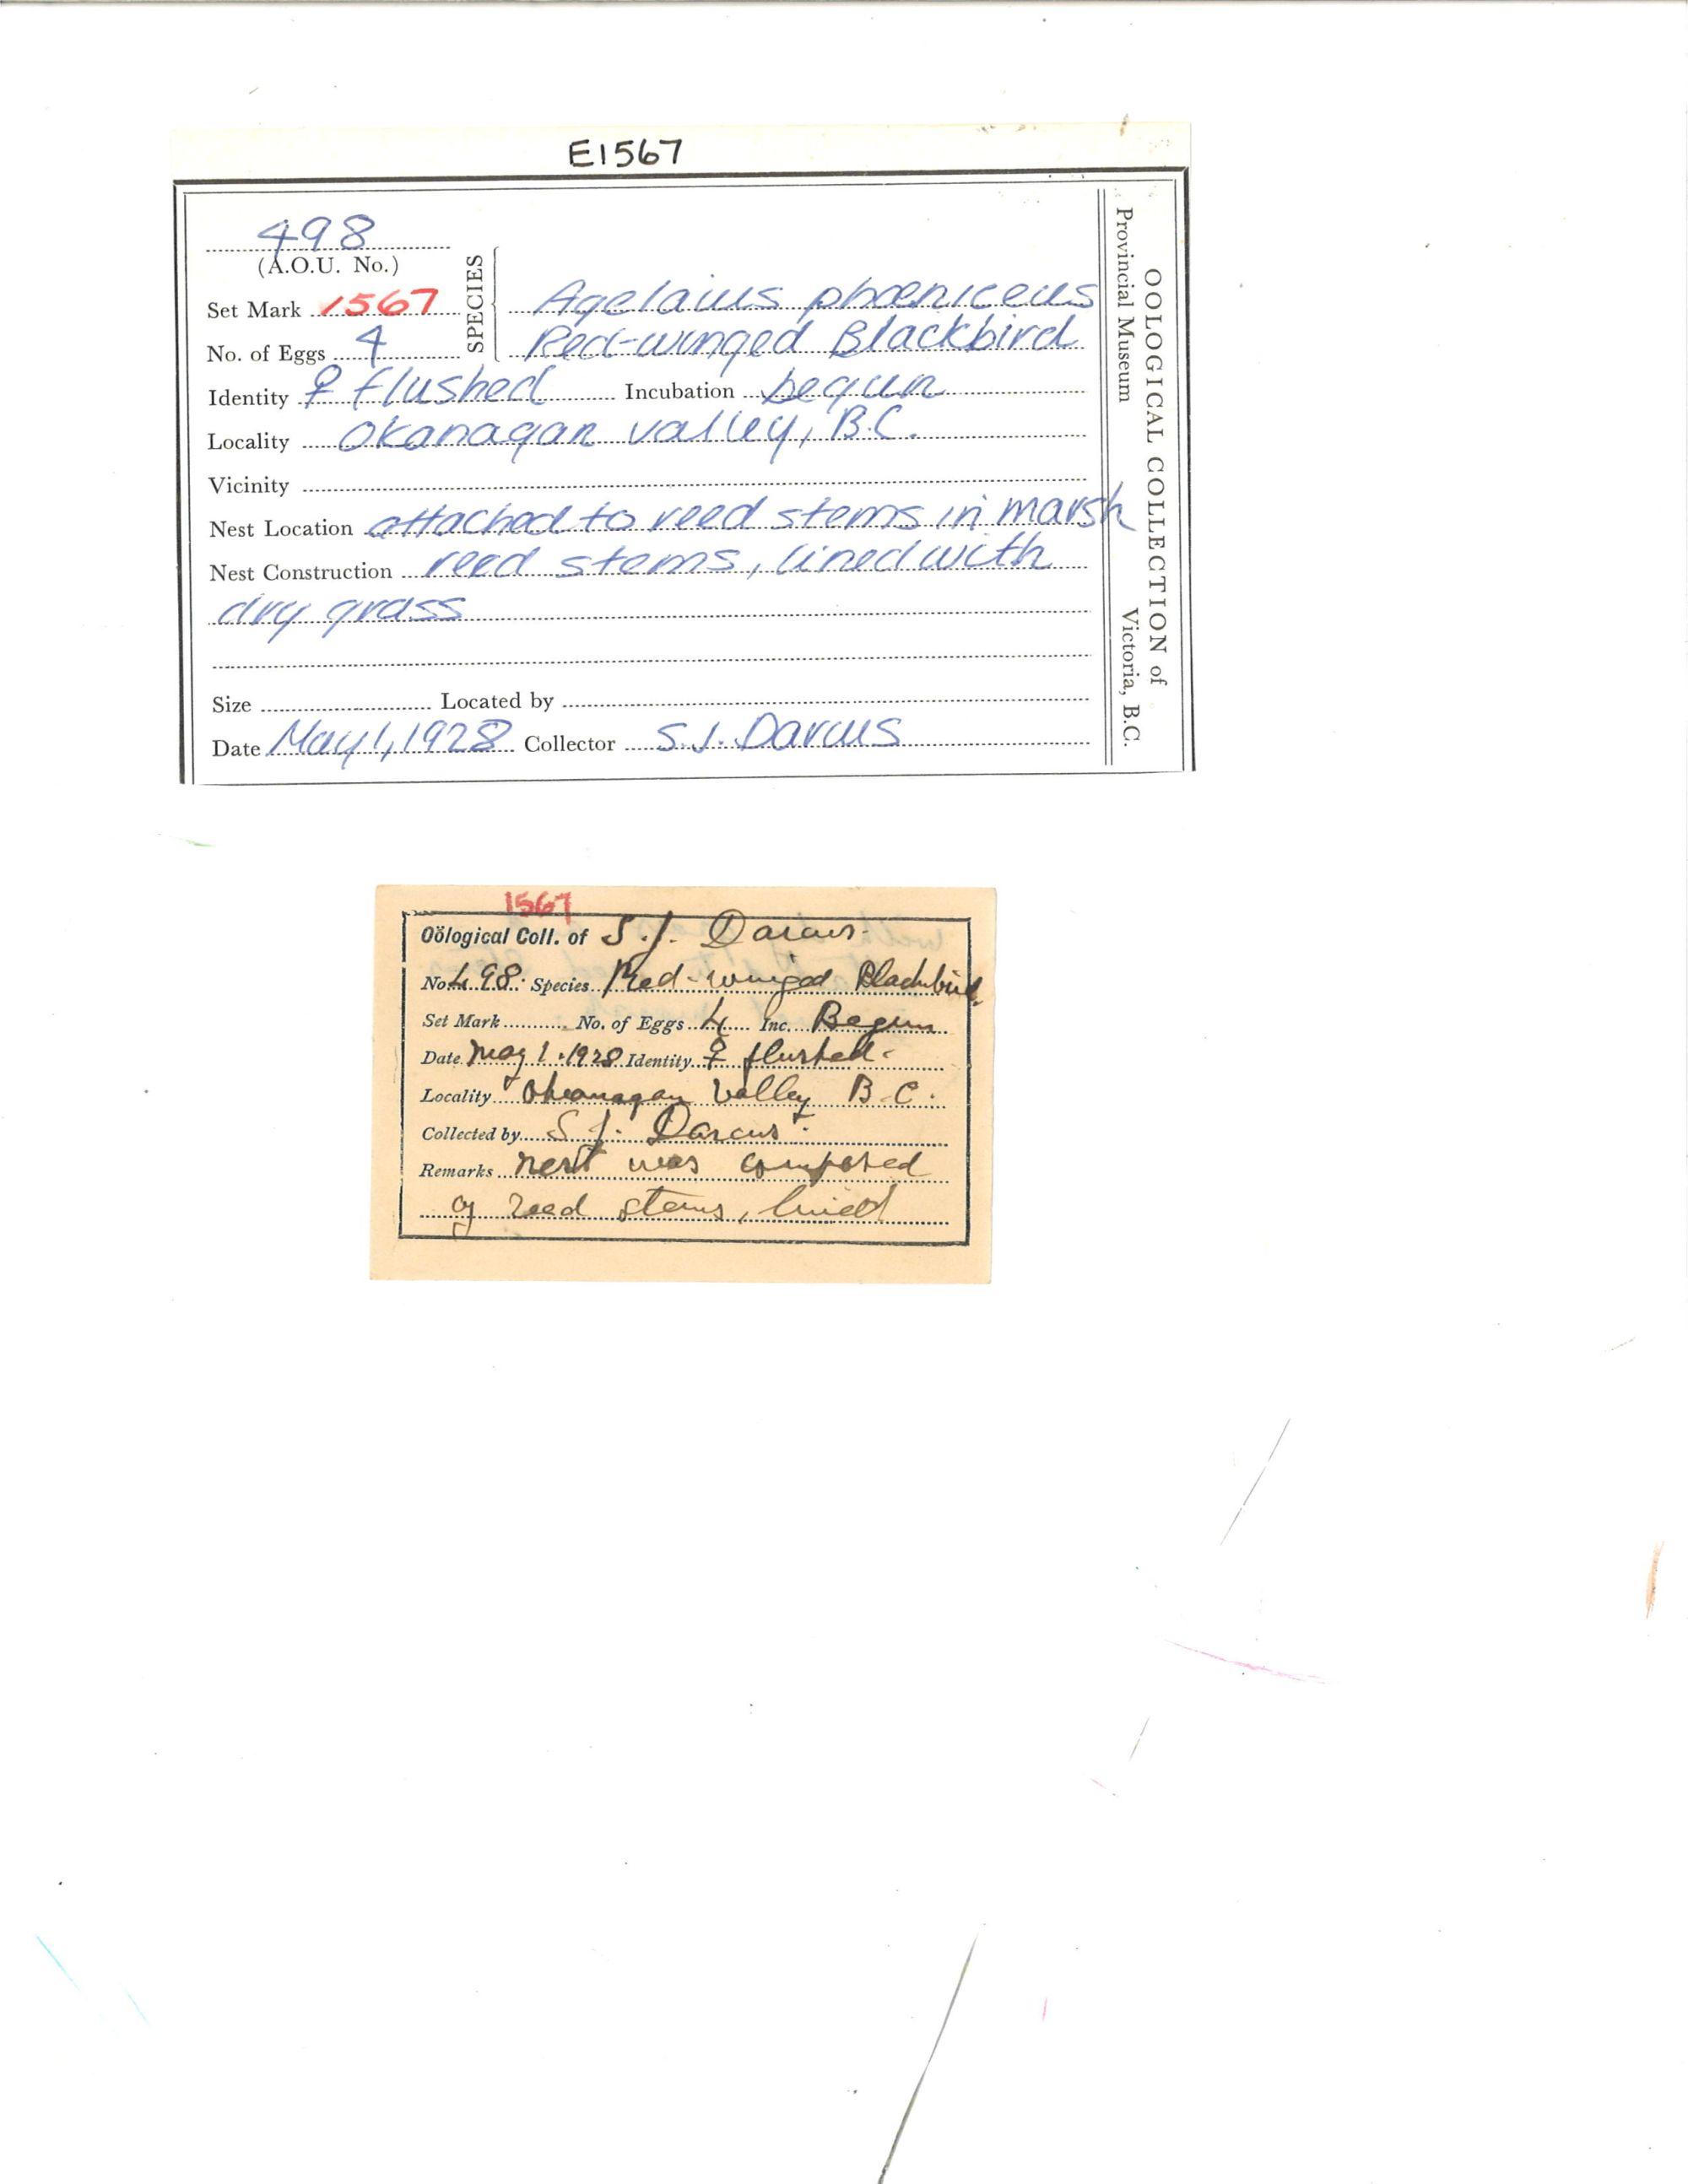 E1567
498
(A.O.U. No.)
Set Mark 1567
No. of Eggs 4
SPECIES
Agelaius phoeniceus
Red-winged Blackbird
Identity ♀ flushed Incubation begun
Locality Okanagan valley, B.C.
Vicinity
Nest Location attached to reed stems in marsh
Nest Construction reed stems, lined with
dry grass
Size Located by
Date May 1, 1928 Collector S.J. Darcus
OOLOGICAL COLLECTION of
Provincial Museum Victoria, B.C.
1567
Oölogical Coll. of S.J. Darcus.
No. 498. Species Red-winged Blackbird.
Set Mark No. of Eggs 4 Inc. Begun
Date May 1. 1928 Identity ♀ flushed.
Locality Okanagan Valley B.C.
Collected by S J. Darcus.
Remarks nest was composed
of reed stems, lined